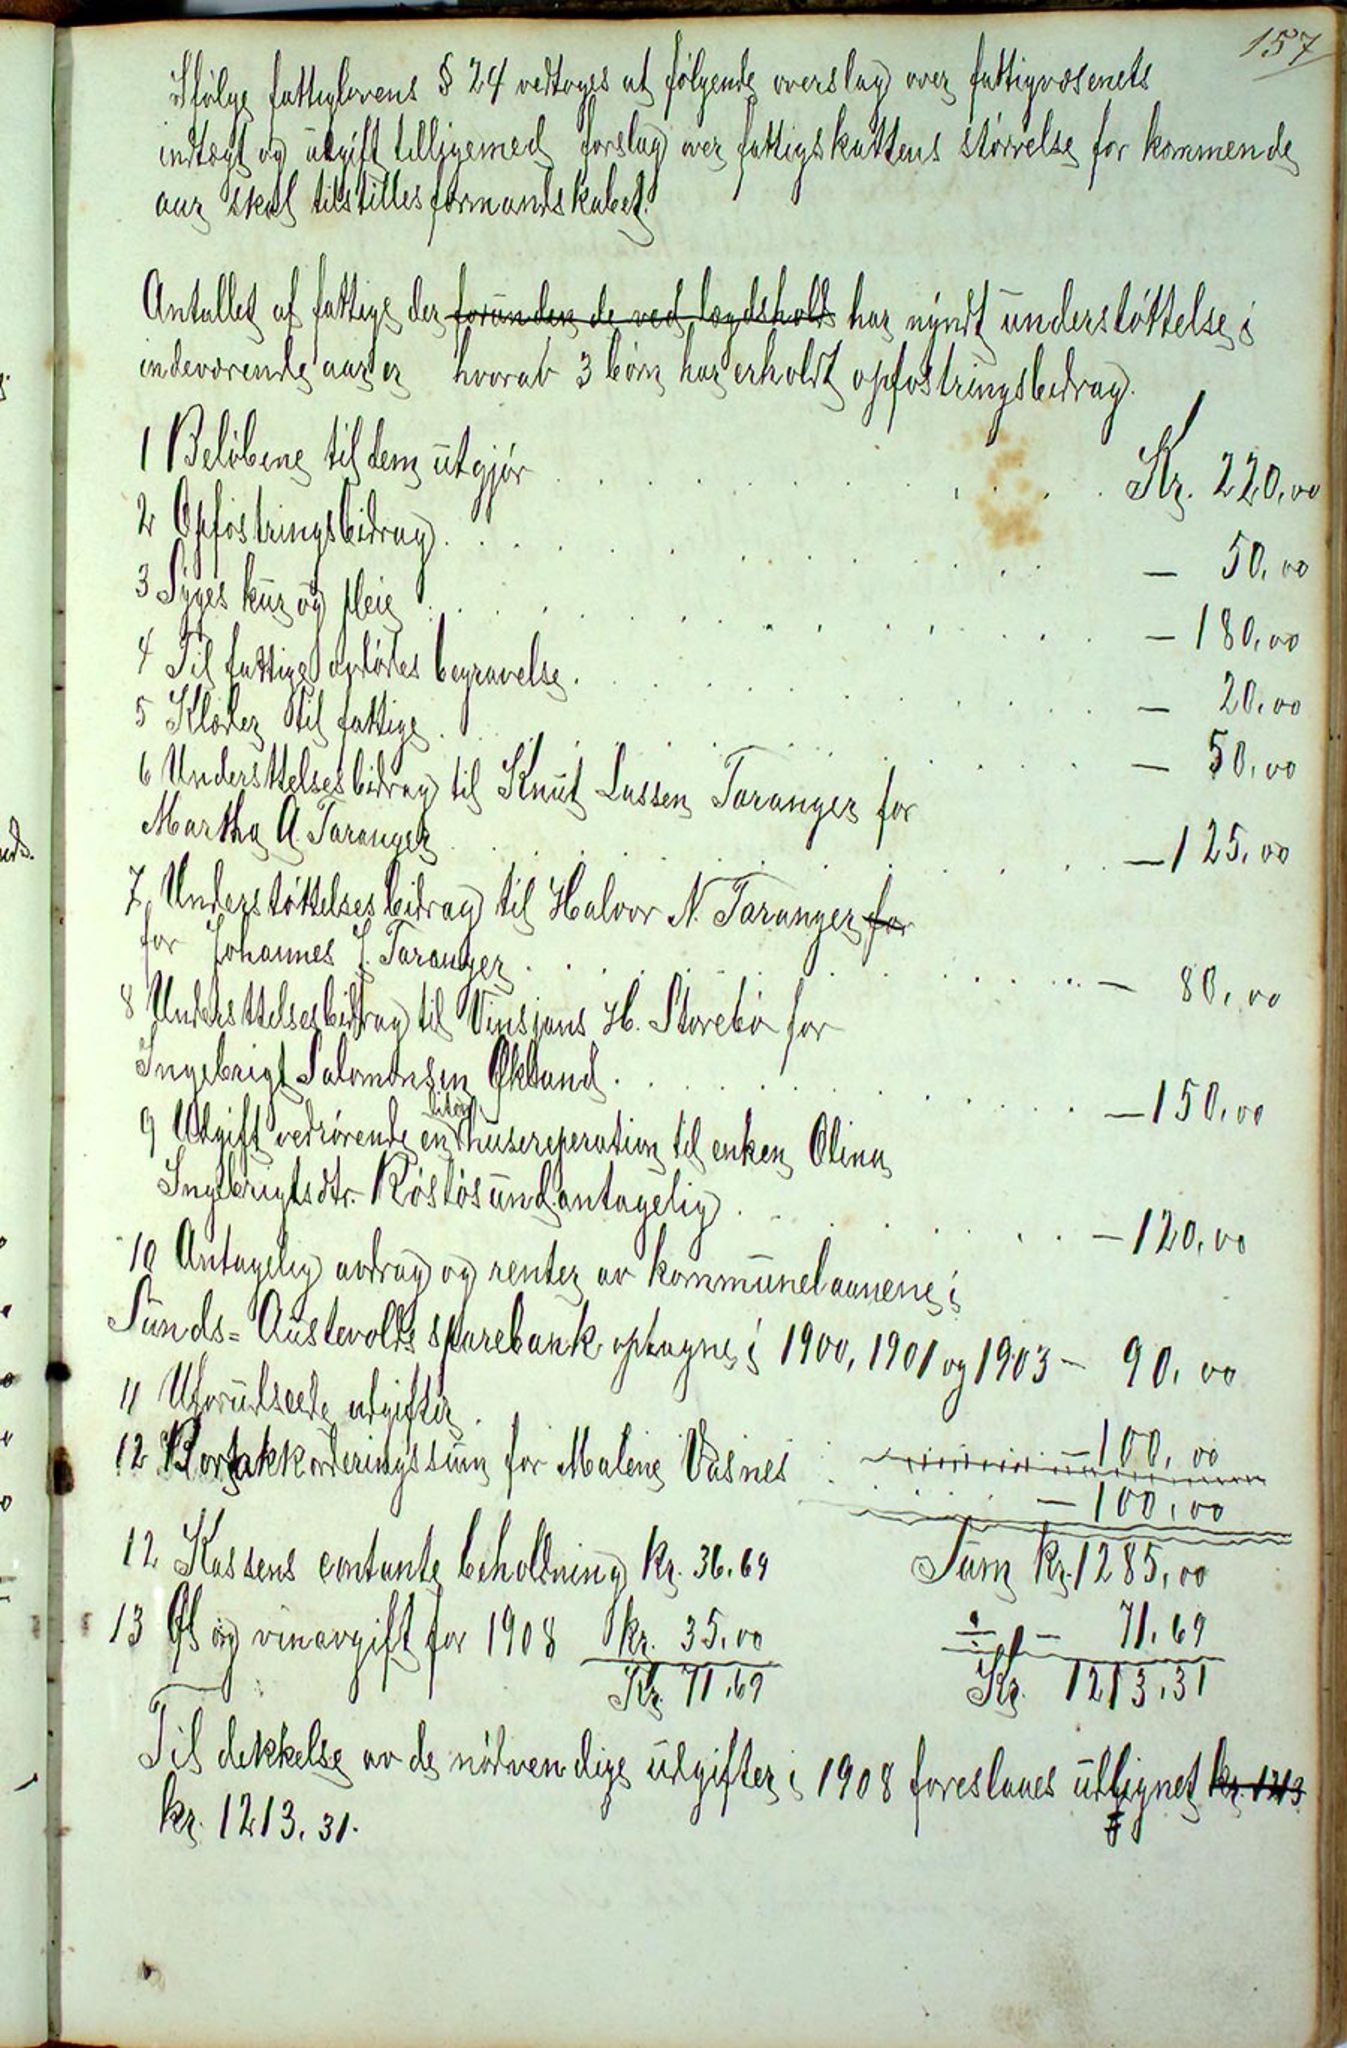 157
Ifølge fattiglovens § 24 vedtoges at følgende overslag over fattigvæsenets
indtægt og utgift tilligemed forslag over fattigskattens størrelse for kommende
aar skal tilstilles formandskabet.
Antallet af fattige der foruden de ved lægdshold har nyndt understøttelse i
indeværende aar er hvorav 3 børn har erholdt opfostringsbidrag.
1 Beløbene til dem utgjør . . . . . Kr. 220,00
2 Opfostringsbidrag . . . . . — 50,00
3 Syges kur og pleie . . . . . — 180,00
4 Til fattige avdødes begravelse . . . . . — 20,00
5 Klæder til fattige . . . . . — 50,00
6 Understtelsesbidrag til Knut Lassen Taranger for
Martha A. Taranger . . . . . — 125,00
7 Understøttelsesbidrag til Halvor N. Taranger for
for Johannes J. Taranger . . . . . — 80,00
8 Understtelsesbidrag til Vinsjans H. Storebø for
Ingebrigt Salomonsen Økland . . . . . — 150,00
9 Utgift vedrørende en liten husereperation til enken Olina
Ingebrigtsdtr. Røstøsund antagelig . . . . . — 120,00
10 Antagelig avdrag og renter av kommunelaanene i
Sunds= Austevolds sparebank optagne i 1900, 1901 og 1903 — 90,00
11 Uforudseede udgifter . . . . . — 100,00
12 Bortakkorderingssum for Malene Vasnes . . . . . — 100,00
Sum kr. 1285,00
12 Kassens contante beholdning kr. 36,69
13 Øl og vinavgift for 1908 kr. 35,00 ÷ — 71,69
Kr. 71,69 Kr. 1213,31
Til dekkelse av de nødvendige udgifter i 1908 foreslaaes utlignet kr. 1213
kr. 1213,31.